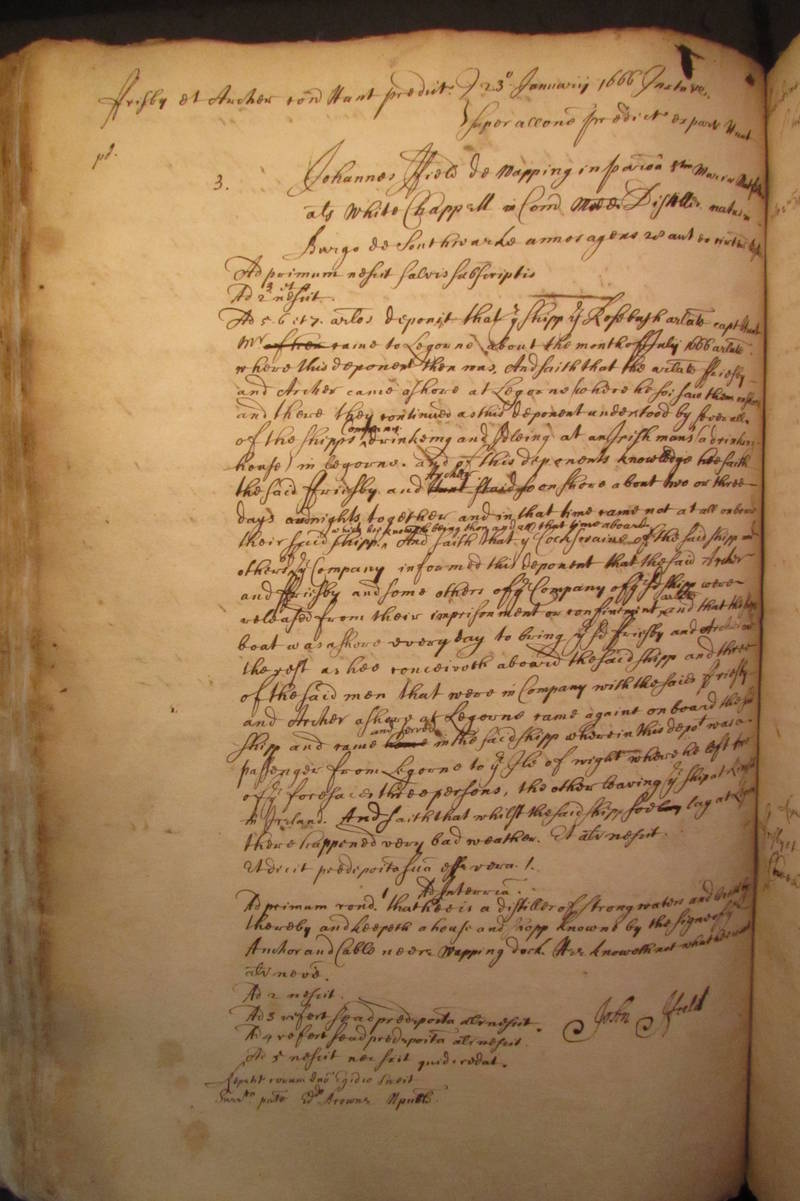 ffrisby et Archer cont Hunt predict. 23o January 1666 Jurtavr.
Super allone predict ex parte Hunt
pd.
3. Johannes ffield de Wapping in parocia Stae Maria
als White Chappell in Com Midd Distiller natus in
Burgo de Southwarke annos agens 28 aut eo
Ad primum nescit salvis subscriptis
Ad 2 3 et 4 nescit.
Ad 5. 6 et 7. arlos deponit that ye shipp ye Rosebush arlate capt Hunt
Mr came to Legorne about the month of July 1666 arlate
where this deponent then was, And saith that the arlate ffrisby
and Archer came ashore at Legorne where he soe saw them
and there they continued as this deponent understood by severall
of the shipps Company drinkeing and at an Irish mans (a drinking
house) in Legorne. and of this deponents knowledge hee saith
the said ffrisby and Archer on shore about two or three
days and nights together and in that time came not at all on board
their said shipp, which hee knoweth being then and all that time aboard And saith that ye Cockswaine of the said shipp and
others of ye Company informed this deponent that the said Archer
and ffrisby and some others of ye Company of ye sd shipp were
released from their imprisonment or confinement and that the shipps
boat was ashore every day to bring ye sd ffrisby and Archer and
the rest as hee conceiveth aboard the said shipp and three
of the said men that were in Company with the said ffrisby
and Archer ashore at Legorne came againe on board the sd
shipp and came and served in the said shipp wherein this depot was a
passenger from Legorne to ye Ile of wight where he left two
of ye foresaid three persons, the other leaving ye ship at
in Ireland. And saith that whilst the said shipp soe lay at
there happened very bad weather. Et alr nescit.
Et dicit predeposita sua esse vera.
Ad Interria.
Ad primum rond. that hee is a distiller of strong waters and
thereby and keepeth a house and shopp knowne by the signe of ye
Anchor and Cable neere Wapping dock. Hee knoweth not what
alr neve.
Ad 2 nescit.
Ad 3 refert se ad predeposita alr nescit.
Ad 4 refert se ad predeposita alr nescit
Ad 5 nescit nec scit quid credat.
John ffeild
Repetit coram dno Egidio Sweit
Surrto pnte Ed: Npub